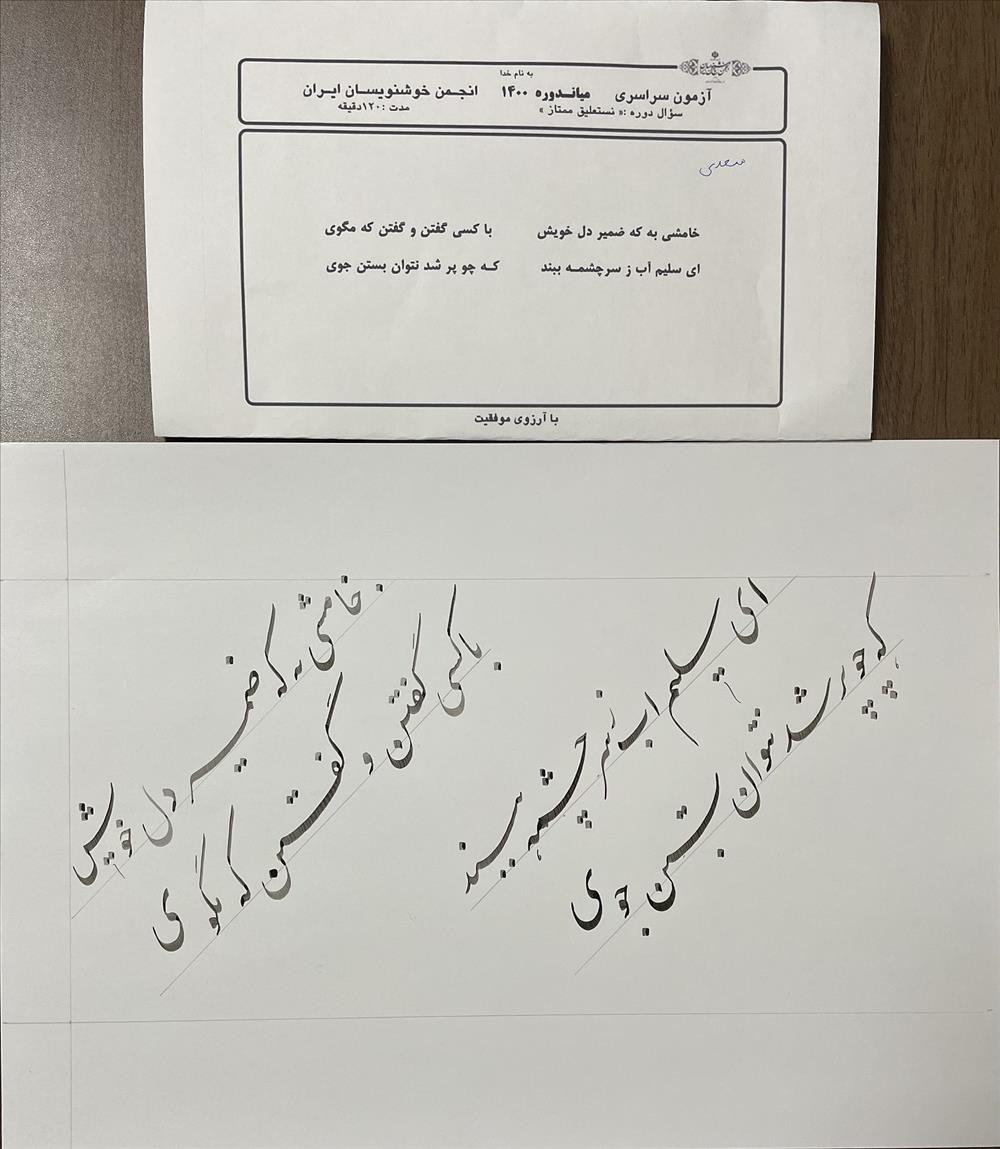 به نام خدا
آزمون سراسری میاندوره ۱۴۰۰ انجمن خوشنویسان ایران
سؤال دوره :« نستعلیق ممتاز » مدت :۱۲۰دقیقه
سعدی
خامشی به که ضمیر دل خویش با کسی گفتن و گفتن که مگوی
ای سلیم آب ز سرچشمه ببند که چو پر شد نتوان بستن جوی
با آرزوی موفقیت
ای سلیم اب ز سرچشمه ببند
که چو پر شد نتوان بستن جوی
خامشی به که ضمیر دل خویش
با کسی گفتن و گفتن که مگوی